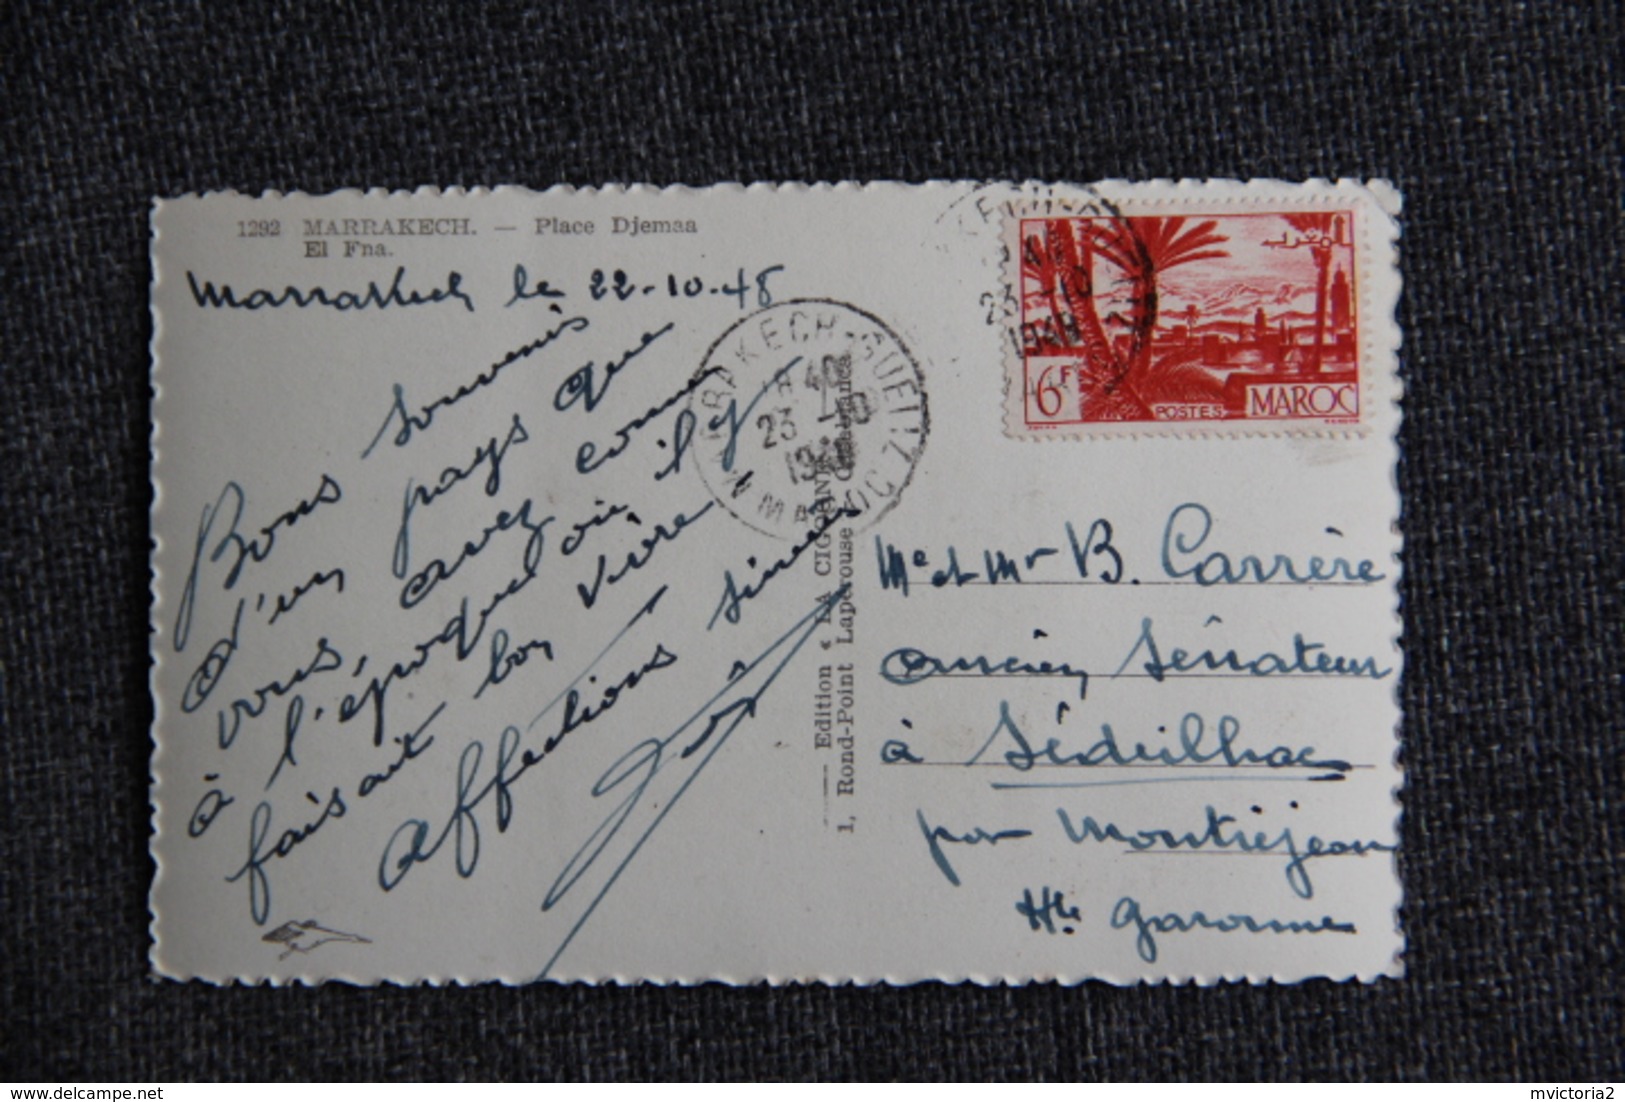 1292 MARRAKECH. — Place Djemaa
El Fna.
Marrakech le 22-10-48
Bons souvenirs
d'un pays que
vous avez connu
à l'époque où il y
faisait bon vivre
affections sincères
MARRAKECH-GUELIZ
18 40
23 10
1948
MAROC
Edition « LA CIGOGNE »
1, Rond-Point Lapérouse Casablanca
23 10
1948
6F
POSTES
MAROC
المغرب
Me et Mr B. Carrère
ancien Sénateur
à Sédeilhac
par Montréjeau
Hte Garonne
mvictoria2